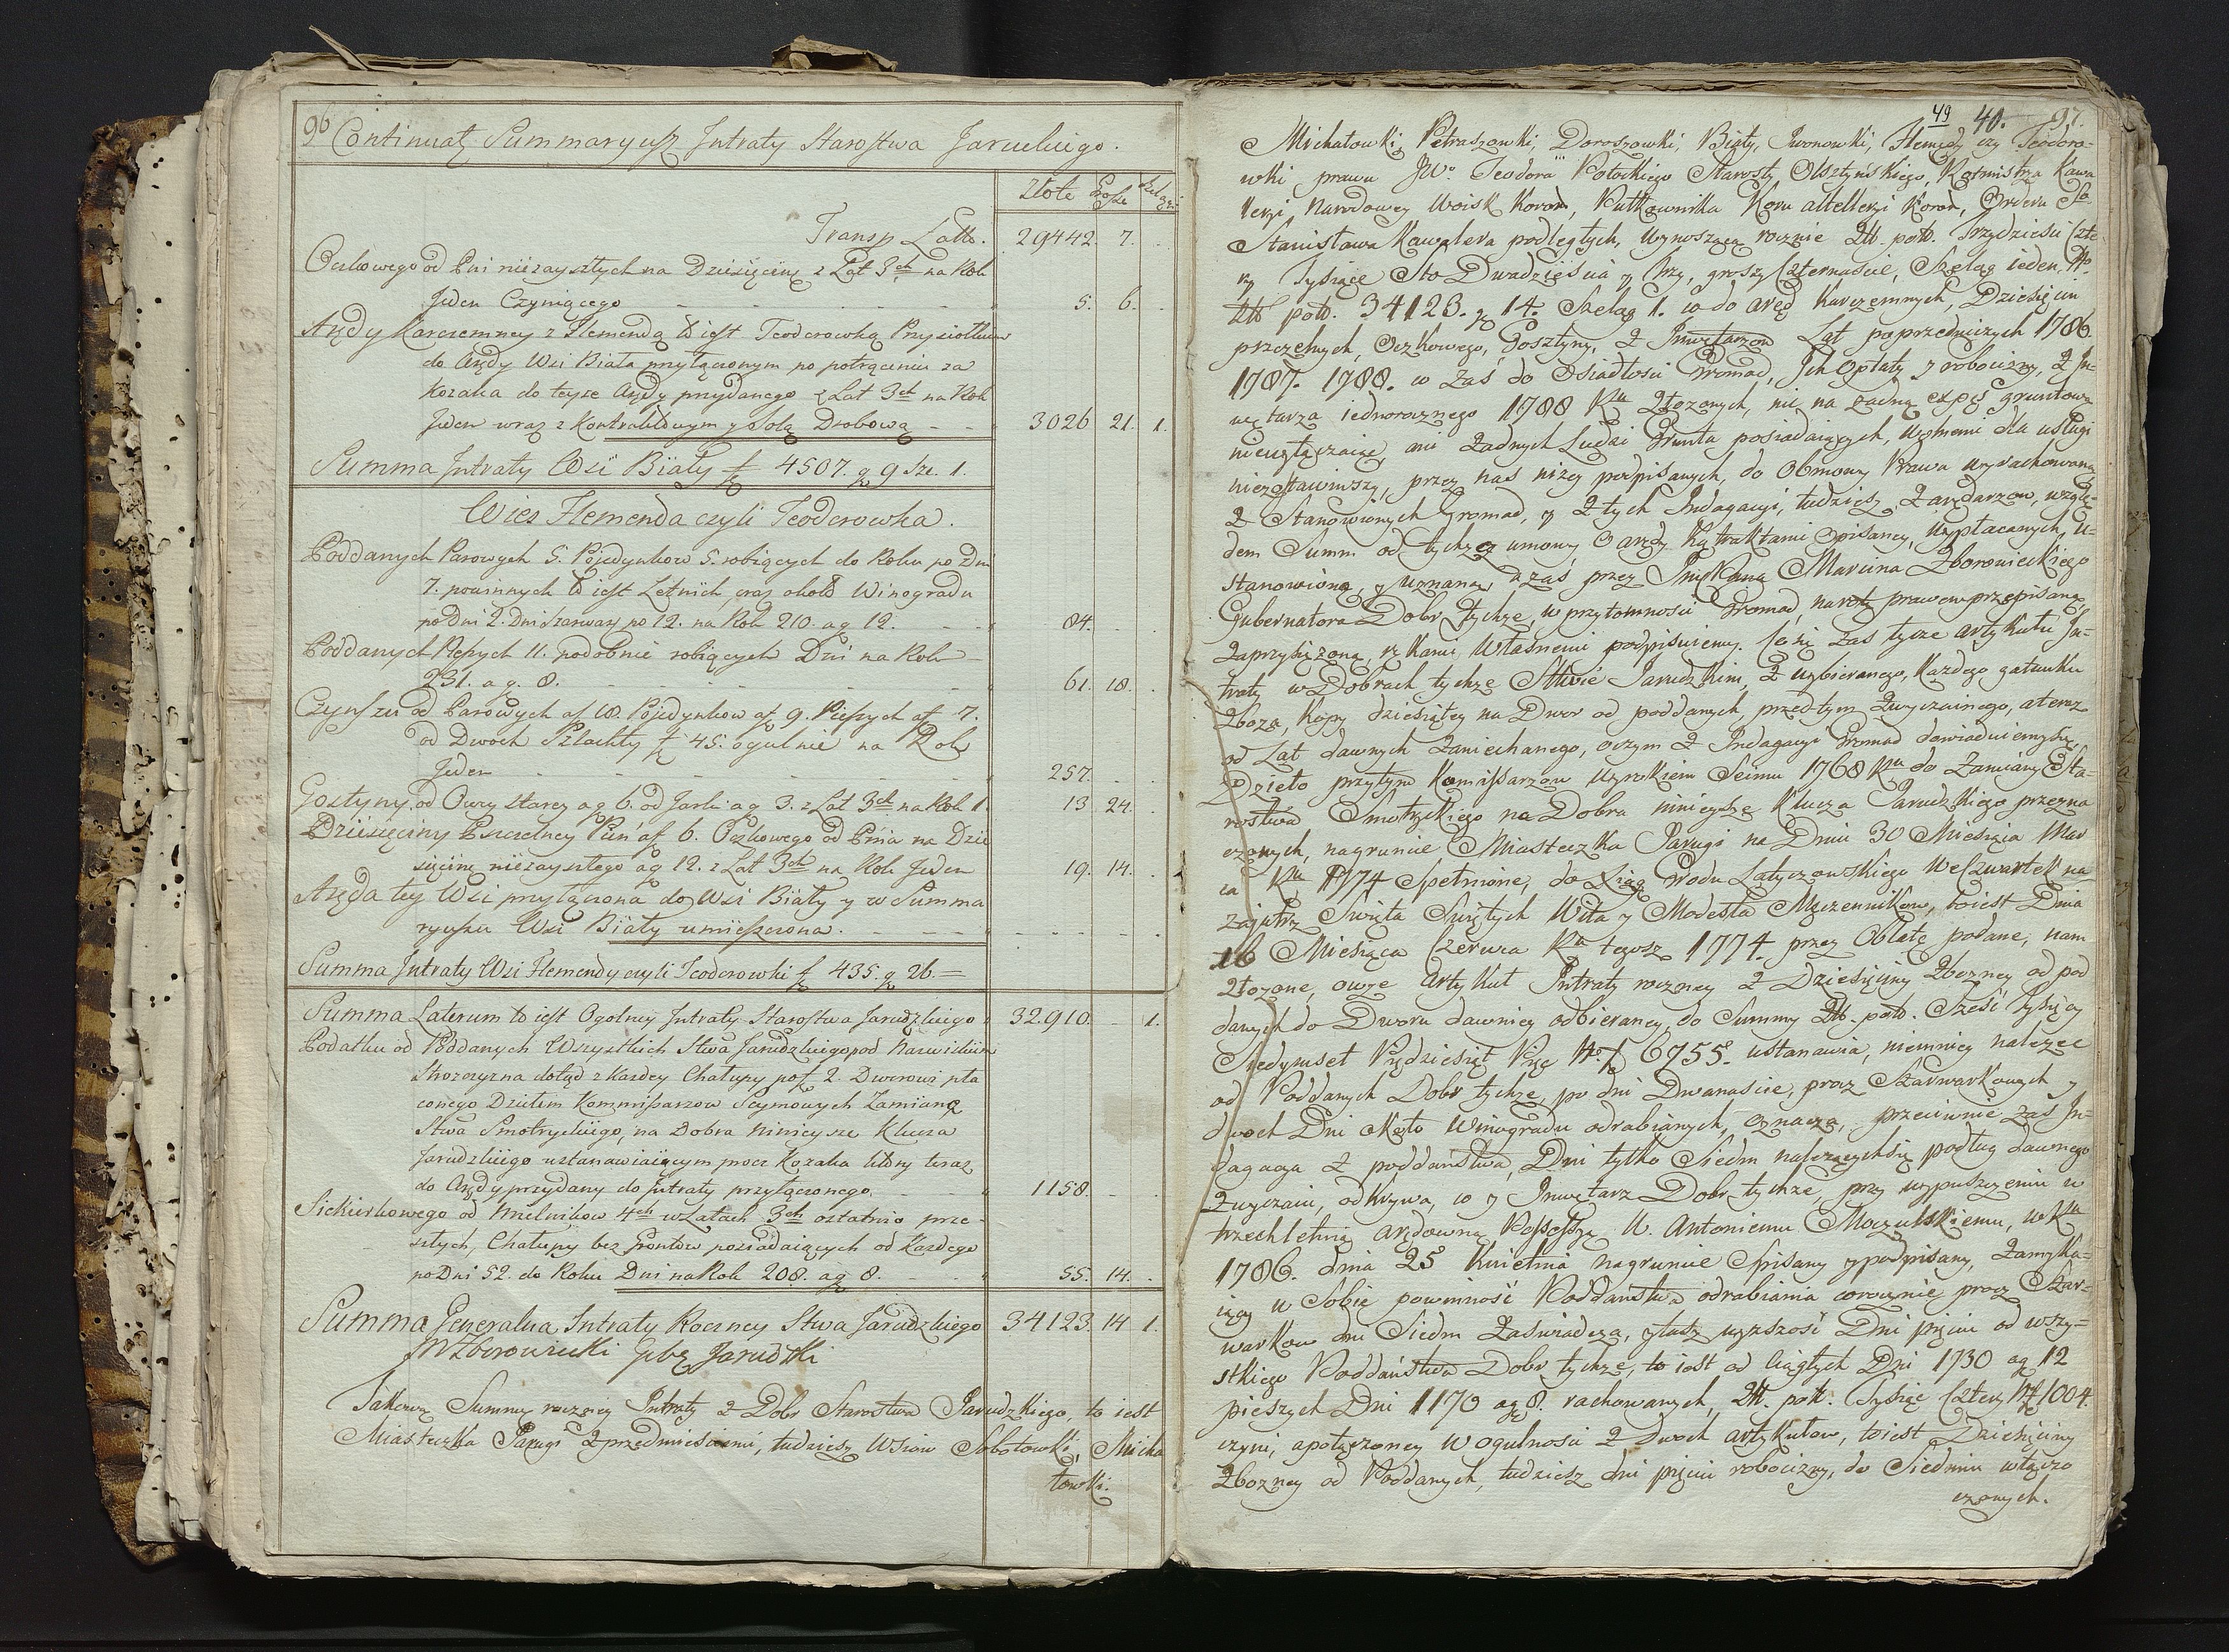 96 Continuat Summaryusz Intraty Starostwa Jaruckiego.
Złote Grosze Szelągi
Transp Latto. 29442. 7.
Oczkowego od Pni niezaysztych na Dziesięcinę z Lat 3ch na Rok
Jeden Czyniącego 5. 6.
Arędy Karczemney z Hemendą to iest Teodorowką Przysiołkiem
do Arędy Wsi Biała przyłączonym po potrąceniu za
Kozaka do teyze Arędy przydanego z Lat 3ch na Rok
Jeden wraz z Kontraktowym y Solą Drobową 3026 21. 1.
Summa Intraty Wsi Biały f 4507. g 9 Sze. 1.
Wies Hemenda czyli Teodorowka.
Poddanych Parowych 5. Pojedynkow 5. robiących do Roku po Dni
7. powinnych to iest Letnich, oraz około Winogradu
po Dni 2. Dni Szarwarz po 12. na Rok 210. a g 12. 84.
Poddanych Pieszych 11. podobnie robiących Dni na Rok
231. a g. 8. 61. 18.
Czynszu od Parowych af 18. Pojedynkow af 9. Pieszych af 7.
od Dwoch Szlachty f 45. ogulnie na Rok
Jeden 257.
Gostyny od Owcy starey a g 6. od Jarki a g 3. z Lat 3ch na Rok 1. 13 24.
Dziesięciny Pszczelney Pień af 6. Oczkowego od Pnia na Dzie
sięcinę niezaysztego ag 12. z Lat 3ch na Rok Jeden 19. 14.
Aręda tey Wsi przyłączona do Wsi Biały y w Summa
ryuszu Wsi Biały umieszczona.
Summa Intraty Wsi Hemendy czyli Teodorowki f 435. g 26. =
Summa Laterum to iest Ogolney Intraty Starostwa Jarudzkiego 32.910. 1.
Podatku od Poddanych Wszystkich Stwa Jarudzkiego pod Nazwiskiem
Strozczyzna dotąd z Kazdey Chałupy po f 2. Dworowi pła
conego Dziełem Kommissarzow Seymowych Zamianę
Stwa Smotryckiego, na Dobra ninieysze Klucza
Jarudzkiego ustanawiaiącym procz Kozaka ktory teraz
do Arędy przydany do Intraty przyłączonego. 1158.
Siekierkowego od Mielnikow 4ch w Latach 3ch ostatnio prze-
szłych, Chałupy bez Gruntow posiadaiących od Kazdego
po Dni 52. do Roku Dni na Rok 208. ag 8. 55. 14.
Summa Generalna Intraty Roczney Stwa Jarudzkiego 34123. 14 1.
MZborowiecki Gbr Jarudzki
Jakową Summę roczney Intraty z Dobr Starostwa Jarudzkiego, to iest
Miasteczka Jarugi z przedmieściami, tudziesz Wsiow Sobotowki, Micha
łowki.
49 40. 97.
Michałowki, Petraszowki, Doroszowki, Biały, Iwonowki, Hemędy czy Teodoro-
wki prawu JWo. Teodora Potockiego Starosty Olsztyńskiego, Rotmistrza Kawa
leryi Narodowey Woisk Koron, Pułkownika Koru altelleryi Koron, Orderu So.
Stanisława Kawalera podległych, wynoszącą rocznie Zł. pols. Trzydzieści Czte
ry Tysiące Sto Dwadzieścia y trzy, groszy Czternaście, Szeląg ieden, No.
Zło pols. 34123. g 14. Szeląg 1. co do aręd Karczemnych, Dziesięcin
pszczelnych, Oczkowego, Gosztyny, z Inwętarzow Lat poprzedniczych 1786.
1787. 1788. w zaś do Osiadłosci Gromad, Ich Opłaty y robocizny, z In-
wętarza iednorocznego 1788 Ru złozonych, nic na zadną expęs gruntową
niewyłączaiąc, ani zadnych Ludzi Grunta posiadaiących, wolnemi dla usługi
niezostawiwszy, przez nas nizey podpisanych, do Obmowy Prawa wyrachowaną
z Stanowionych Gromad, y z tych Indagacyi, tudziesz Zarędarzow, wzglę-
dem Summ od tychze umowy o arędy Kątraktami opisaney, wypłacanych, u-
stanowioną, y uznaną, a zaś przez Imć Pana Marcina Zborowieckiego
Gubernatora Dobr tychze, w przytomnosci Gromad, na rotę prawem przepisaną,
zaprzysięzoną, rękami własnemi podpisuiemy. Coż zas tycze artykułu In-
traty w Dobrach tychze Stwie Jarudzkim, z wybieranego, Kazdego gatunku
zboza, kopy dziesiątey na Dwor od poddanych, przed-tym zwyczainego, a teraz
od Lat dawnych zaniechanego, oczym z Indagacyi Gromad dowiaduiemysię,
Dzieło przytym Komissarzow wyrokiem Seimu 1768 Ru do Zamiany Sta-
rostwa Smotryckiego na Dobra ninieysze Klucza Jarudzkiego przezna
czonych, nagruncie Miasteczka Jarugi na Dniu 30 Miesiąca Mar
ca Ru 1774 Spełnione, do Xiąg Grodu Latyczowskiego We Czwartek na
zajutrz Swięta Swiętych Wita y Modesta Męczennikow, toiest Dnia
16 Miesiąca Czerwca Ru tegosz 1774. przez Oblatę podane, nam
złozone, owze Artykuł Intraty roczney z Dziesięciny Zbozney od pod
danych do Dworu dawniey odbieraney, do Summy Zło. pols. Sześć tysięcy
Siedymset Pięćdziesiąt Pięc No. f 6755. ustanawia, niemniey nalezec
od Poddanych Dobr tychze, po dni Dwanascie, procz Szarwarkowych y
dwoch Dni około Winogradu odrabianych, oznacza, przeciwnie zas In-
dagacya z poddaństwa, Dni tylko Siedm nalezącychsię podług dawnego
zwyczaiu, odkrywa, co y Inwętarz Dobr tychze, przy wypuszczeniu w
trzechletnią arędowną Possessyę W. Antoniemu Moczulskiemu, w Ru
1786. dnia 25 Kwietnia nagruncie Spisany ypodpisany, zamyka-
iący w Sobie powinność Poddaństwa odrabiania corocznie procz Szar-
warkow dni Siedm zaświadcza, ztąd wyzszość Dni pięciu od wszy-
stkiego Poddaństwa Dobr tychze, to iest od Ciągłych Dni 1730 ag 12
pieszych Dni 1170 ag 8. rachowanych, Zł. pols. Tysiąc Cztery No f 1004.
czyni, a połączoney w ogulnosci z Dwoch artykułow, toiest Dziesięciny
Zbozney od Poddanych, tudziesz dni pięciu robocizny, do Siedmiu włącza
czonych.